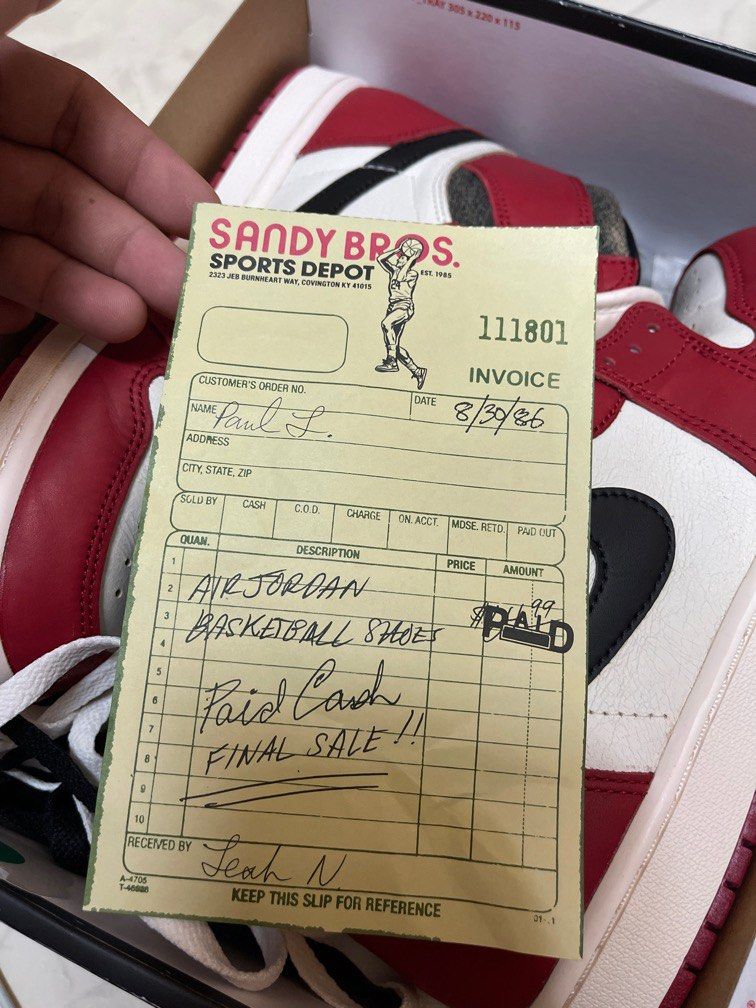 TRAY 305 x 220 x 115
SANDY BROS.
SPORTS DEPOT
EST. 1985
2323 JEB BURNHEART WAY, COVINGTON KY 41015
111801
INVOICE
CUSTOMER'S ORDER NO.
DATE 8/30/86
NAME Paul L.
ADDRESS
CITY, STATE, ZIP
SOLD BY CASH C.O.D. CHARGE ON. ACCT. MDSE. RETD. PAID OUT
QUAN. DESCRIPTION PRICE AMOUNT
1
2 AIR JORDAN
3 BASKETBALL SHOES PAID
4
5
6 Paid Cash
7
8 FINAL SALE!!
9
10
RECEIVED BY Leah N
A-4705
KEEP THIS SLIP FOR REFERENCE